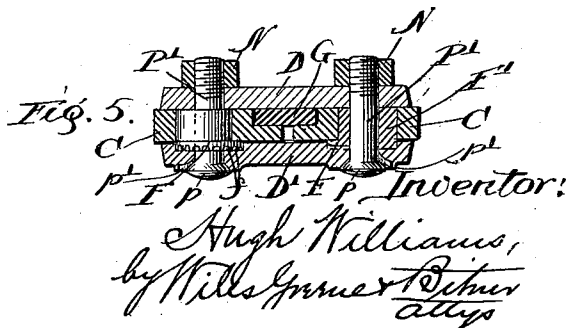 N G N
P¹ D P¹
Fig. 5. F¹
C C
p¹ F p f D¹ F p p¹
Inventor:
Hugh Williams,
by Wills Greene & Bitner
attys